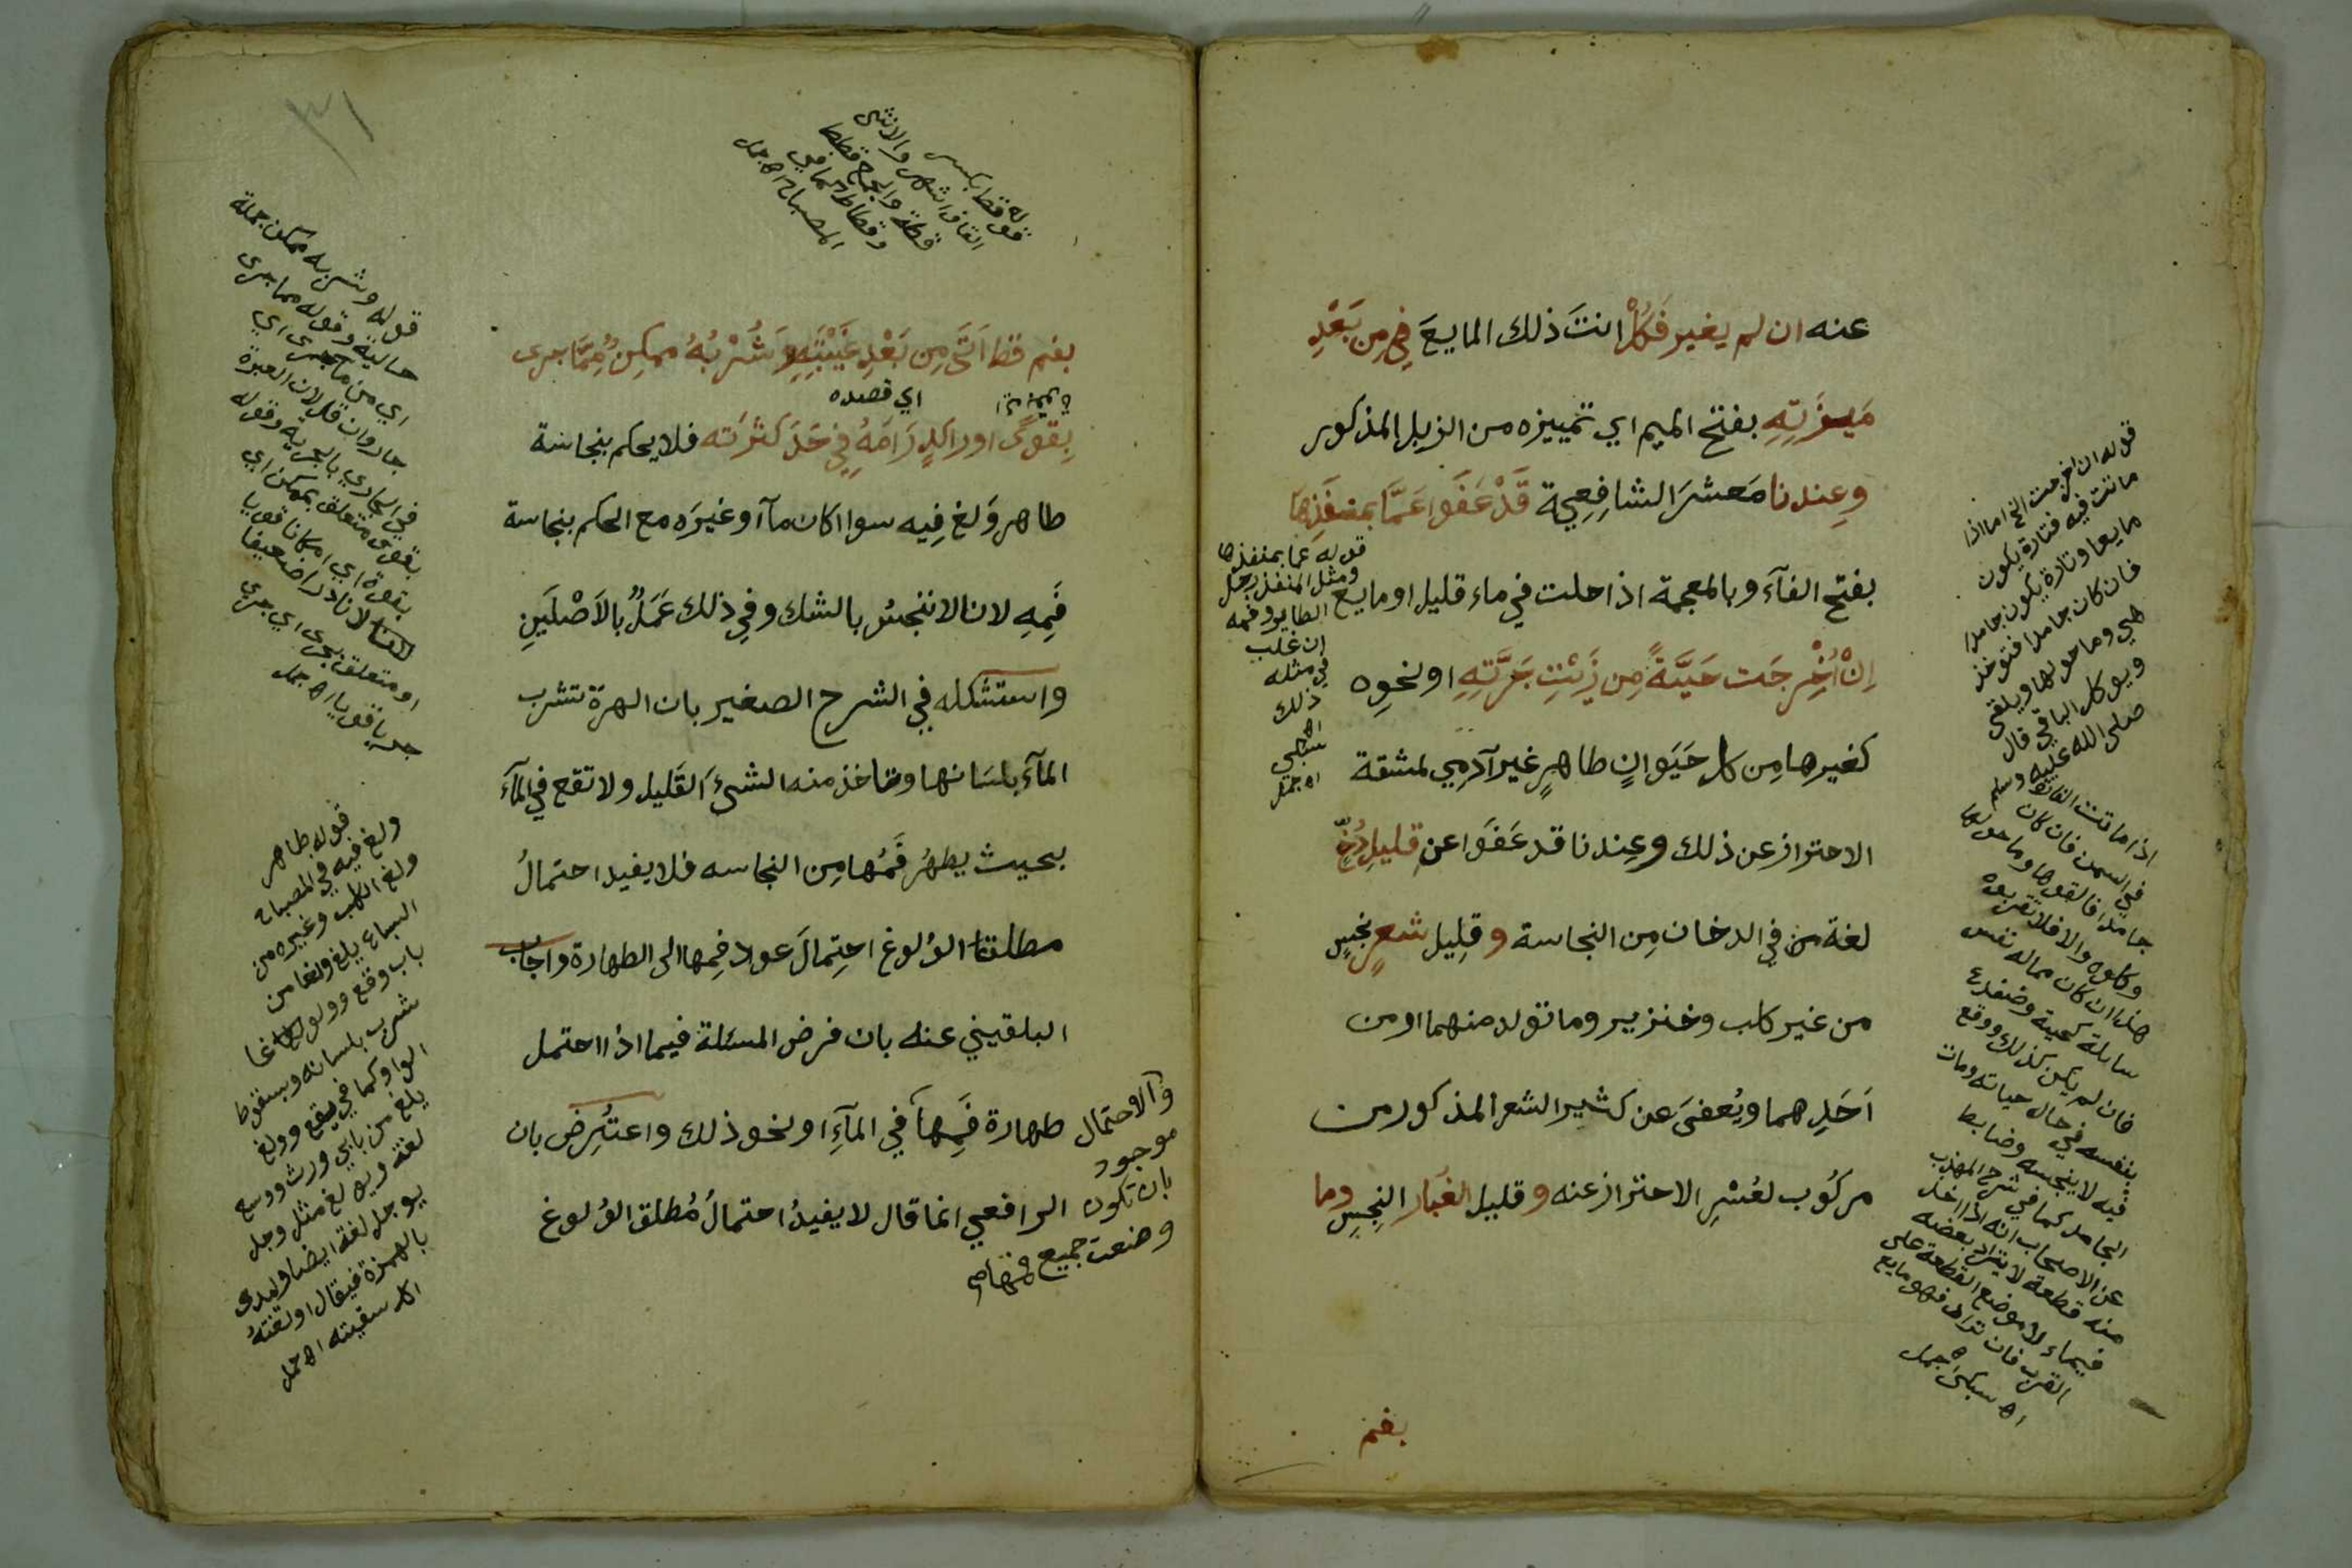 عنه ان لم يغير فَكُلْ انتَ ذلك المايعَ في مِن بَعْدِ
مَيْزَتِهِ بفتح الميم اي تمييزه من الزبل المذكور
وعِندنا مَعشرَ الشافِعِية قَدْ عَفَوا عَمَّا بمنفَذِهَا
بفتح الفآء وبالمعجمة اذا حلت في ماء قليل او مايع
اِنْ اُخْرِجَت حَيَّةً مِن زَيْتِ جَرَّتِهِ او نحوِه
كغيرها مِن كل حَيَوانٍ طاهِرٍ غير آدمِي لمشقة
الاحتراز عن ذلك وعِندنا قد عَفَوا عن قليلِ دُخٍّ
لغة من في الدخان مِن النجاسة وقلِيل شعرٍ نجِسٍ
من غير كلب وخنزير وما تولد منهما او من
اَحَدِهما ويُعفىَ عن كثير الشعر المذكور من
مركُوب لعُسْرِ الاحتراز عنه وقليل الغُبَار النجِسِ وما
بفم
قوله عما بمنفذها
ومثل المنفذ رجل
الطاير وفمه
ان غلب
في مثله
ذلك
اه
سبكي
اه جمل
قوله ان اخرجت الخ اما اذا
ماتت فيه فتارة يكون
مايعا وتارة يكون جامدا
فان كان جامدا فتوخذ
هي وما حولها ويلقى
ويوكل الباقي قال
صلى الله عليه وسلم
اذا ماتت الفارة
في السمن فان كان
جامدا فالقوها وما حولها
وكلوه والا فلا تقربوه
هذا ان كان مما له نفس
سايلة كحية وضفدع
فان لم يكن كذلك ووقع
بنفسه في حال حياته ومات
فيه لا ينجسه وضابط
الجامد كما في شرح المهذب
عن الاصحاب انه اذا اخذ
منه قطعة لا يتراد بعضه
فيملء لا موضع القطعة على
القرب فان تراد فهو مايع
اه سبكى اه جمل
٣١
قوله قط بكسر
القاف اشهر والانثى
قطة والجمع قطط
وقطاط كما في
المصباح اه جمل
بفم قط اَتَى مِن بَعْدِ غَيْبَتِهِ وَشُرْبُهُ ممكِنٌ مِمَّا جرى
اي قصده
بِقوىً او راكدٍ رَامَهُ فِي حَدَ كثرَته فلا يحكم بنجاسة
طاهر وَلغ فِيه سوا اكان مآ او غيرَه مع الحكم بنجاسة
فَمِهِ لانا لا ننجسُ بالشك وفِي ذلك عَمَلٌ بالاَصْلَينِ
واستشكله في الشرح الصغير بان الهرة تشرب
المآء بلسَانها وتاخذ منه الشىءَ القَليل ولا تقع في المآءِ
بحيث يطهُر فَمُها مِن النجاسه فلا يفيد احتمالُ
مطلقا الوُلوغ احتِمالَ عود فمِها الى الطهارة واجاب
البلقيني عنه بان فرض المسئلة فيما اذا احتمل
طهارة فَمِهاَ في المآءِ او نحو ذلك واعتُرِض بان
الرافعي انما قال لا يفيدُ احتمالُ مُطلق الوُلوغ
والاحتمال
موجود
بان تكون
وضعت جميع فمها صح
قوله وشربه ممكن جملة
حالية وقوله مما جرى
اي من ما جرى اي
جار وان قل لان العبرة
في الجاري بالجرية وقوله
بقوى متعلق بممكن اي
بقوة اي امكانا قويا
لا نادرا ضعيفا
او متعلق بجرى اي جري
جريا قويا اه جمل
قوله طاهر
ولغ فيه في المصباح
ولغ الكلب وغيره من
السباع يلغ ولغا من
باب وقع وولوغا
شرب بلسانه وسقوط
الواو كما في يقع وولغ
يلغ من بابي ورث ووسع
لغة ويولغ مثل وجل
يوجل لغة ايضا ويعدى
بالهمزة فيقال اولغته
اذا سقيته اه جمل